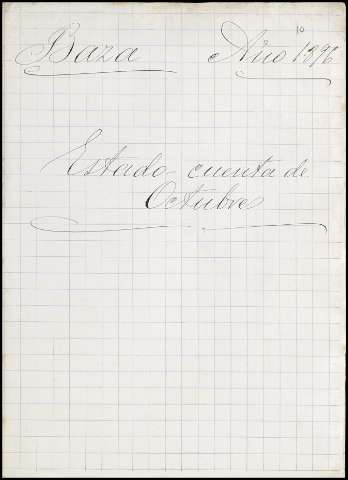 10
Baza Año 1896
Estado cuenta de
Octubre